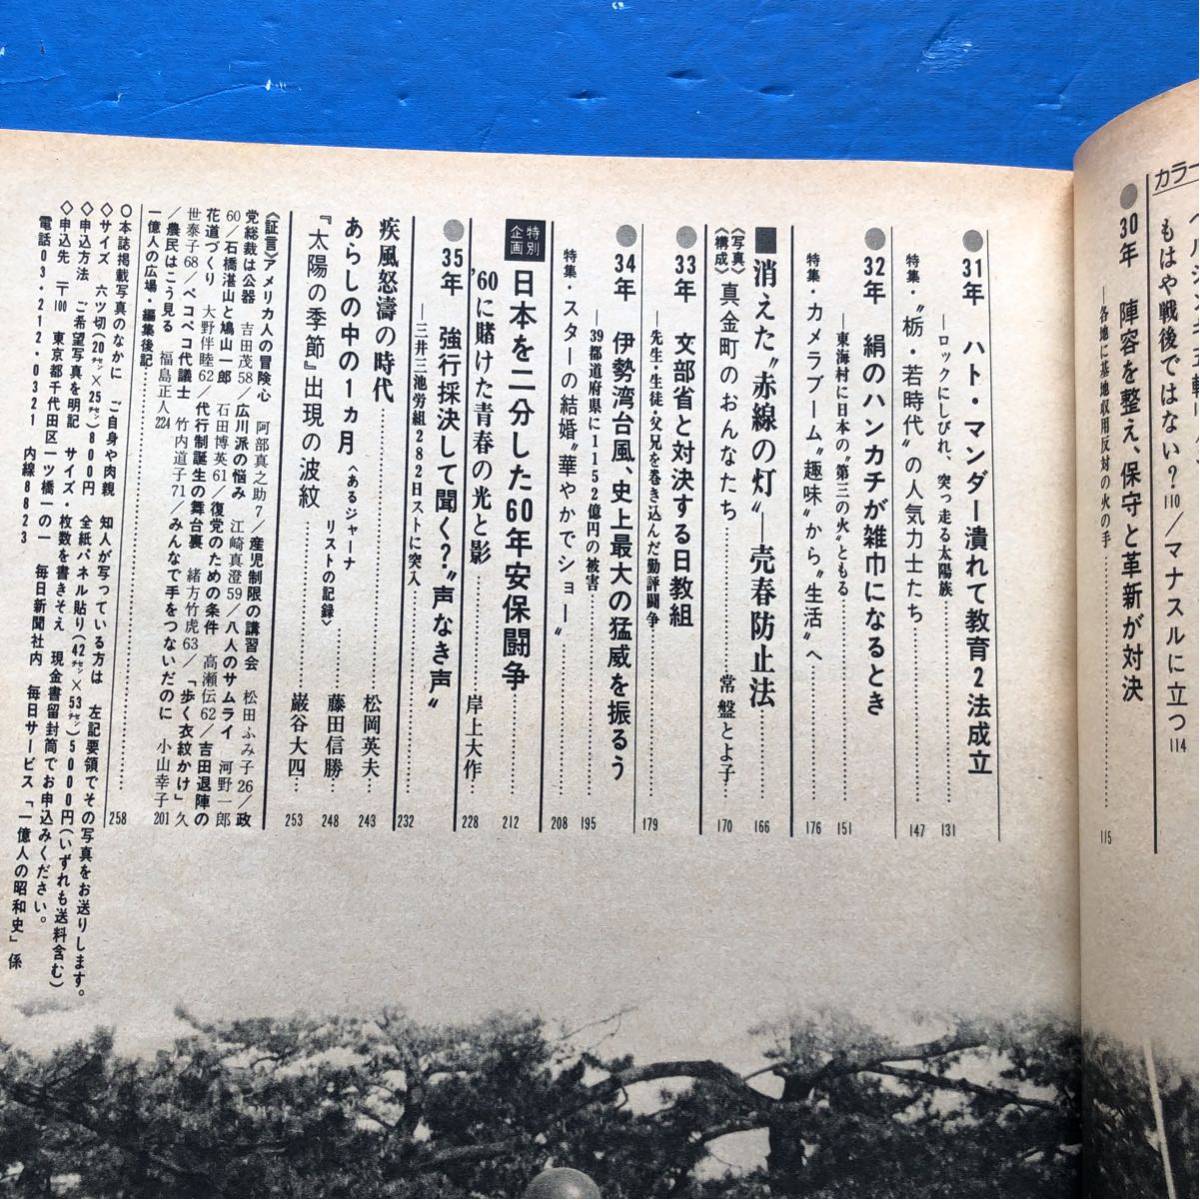 カラー
もはや戦後ではない？110／マナスルに立つ114
●30年　陣容を整え、保守と革新が対決
―各地に基地収用反対の火の手……115
●31年　ハト・マンダー潰れて教育2法成立
―ロックにしびれ、突っ走る太陽族……131
特集・〝栃・若時代〟の人気力士たち……147
●32年　絹のハンカチが雑巾になるとき
―東海村に日本の〝第三の火〟ともる……151
特集・カメラブーム〝趣味〟から〝生活〟へ……176
■消えた〝赤線の灯〟―売春防止法……166
《写真》《構成》真金町のおんなたち……常盤とよ子…170
●33年　文部省と対決する日教組
―先生・生徒・父兄を巻き込んだ勤評闘争……179
●34年　伊勢湾台風、史上最大の猛威を振るう
―39都道府県に1152億円の被害……195
特集・スターの結婚〝華やかでショー〟……208
特別企画　日本を二分した60年安保闘争……212
'60に賭けた青春の光と影……岸上大作…228
●35年　強行採決して聞く？〝声なき声〟
―三井三池労組282日ストに突入……232
疾風怒濤の時代……松岡英夫…243
あらしの中の1カ月〈あるジャーナリストの記録〉……藤田信勝…248
『太陽の季節』出現の波紋……巌谷大四…253
《証言》アメリカ人の冒険心　阿部真之助7／産児制限の講習会　松田ふみ子26／政
党総裁は公器　吉田茂58／広川派の悩み　江崎真澄59／八人のサムライ　河野一郎
60／石橋湛山と鳩山一郎　石田博英61／復党のための条件　高瀬伝62／吉田退陣の
花道づくり　大野伴睦62／代行制誕生の舞台裏　緒方竹虎63／「歩く衣紋かけ」久
世泰子68／ペコペコ代議士　竹内道子71／みんなで手をつないだのに　小山幸子201
／農民はこう見る　福島正人224
一億人の広場・編集後記……258
○本誌掲載写真のなかに　ご自身や肉親　知人が写っている方は　左記要領でその写真をお送りします。
◇サイズ　六ツ切(20㌢×25㌢)800円　全紙パネル貼り(42㌢×53㌢)5000円(いずれも送料含む)
◇申込方法　ご希望写真を明記　サイズ・枚数を書きそえ　現金書留封筒でお申込みください。
◇申込先　〒100　東京都千代田区一ツ橋一の一　毎日新聞社内　毎日サービス「一億人の昭和史」係
電話03・212・0321　内線8823